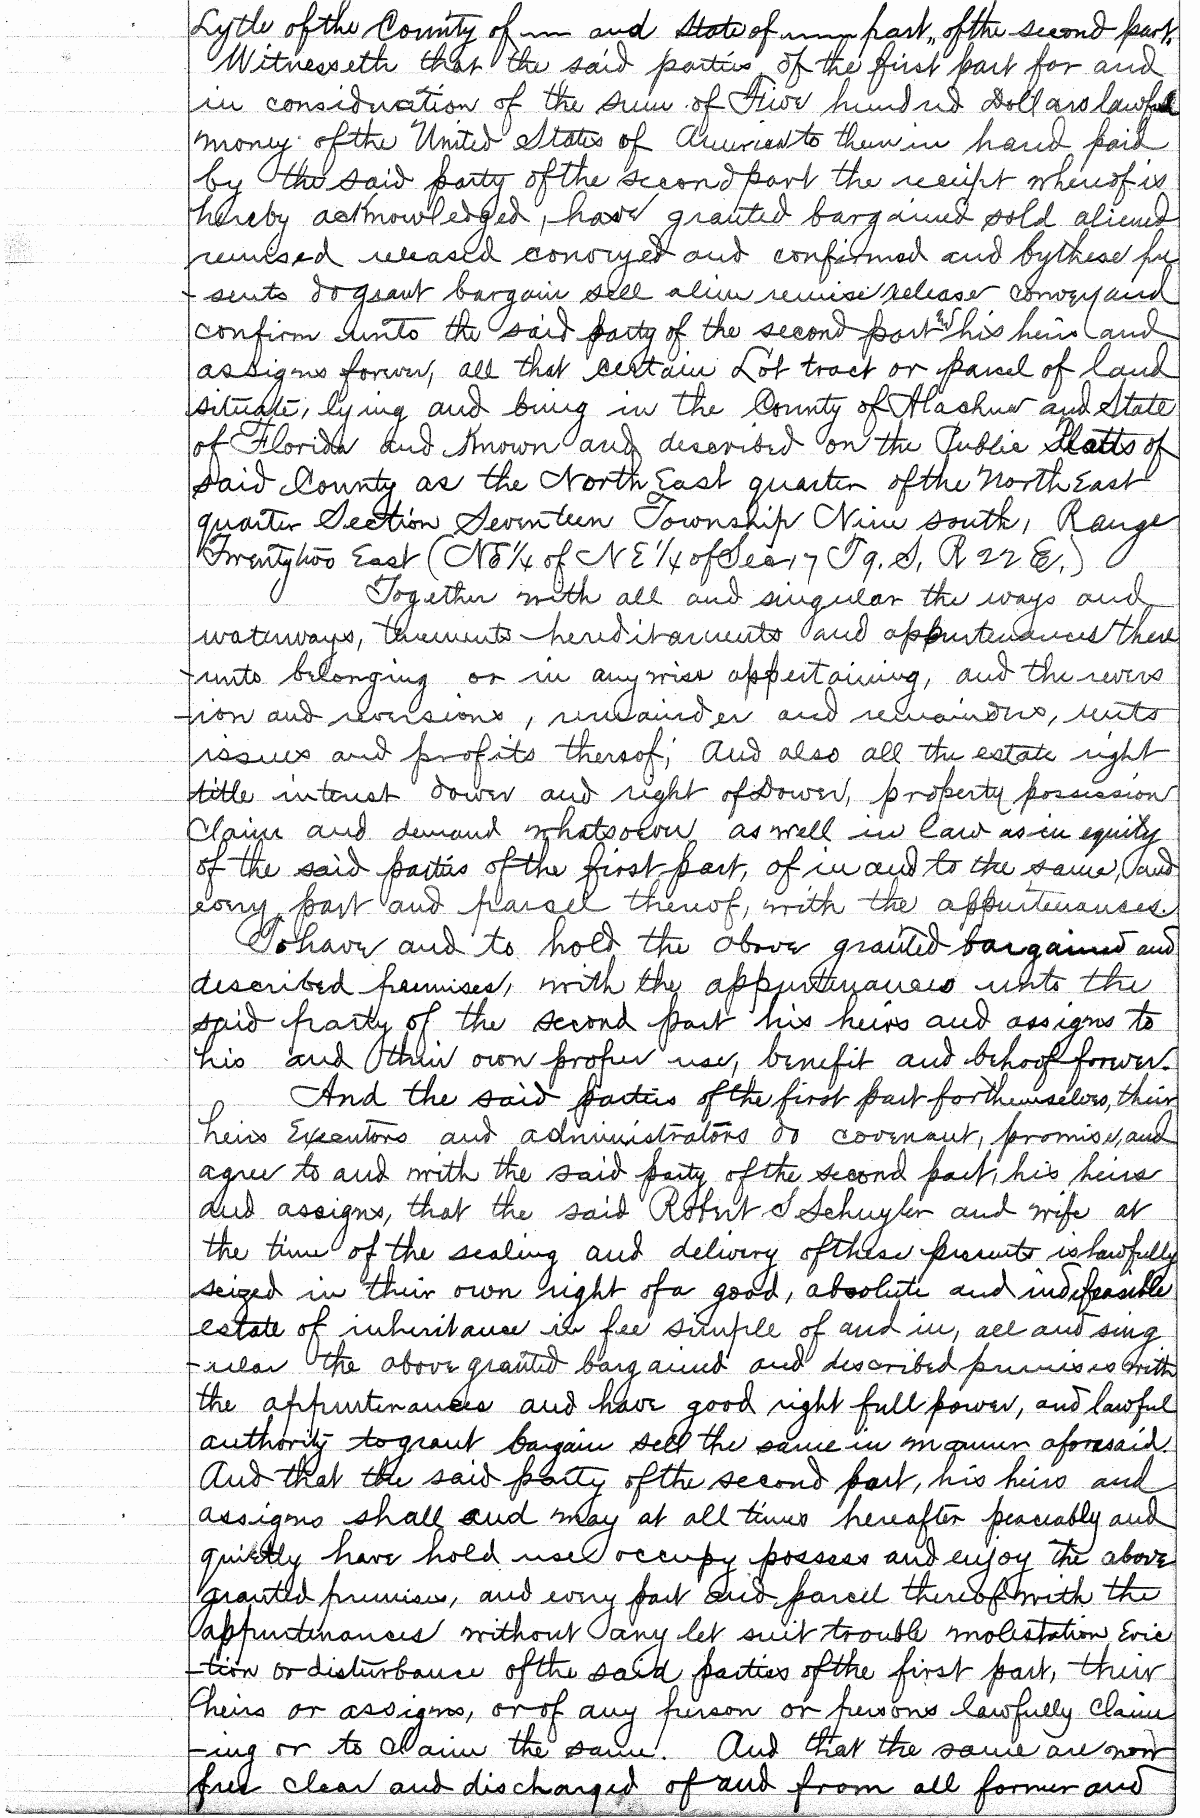 Lytle of the County of — and State of — part„ of the second part.
Witnesseth that the said parties of the first part for and
in consideration of the sum of Five hundred Dollars lawful
money of the United States of America to them in hand paid
by the said party of the second part the receipt whereof is
hereby acknowledged, have granted bargained sold aliened
remised released conveyed and confirmed and by these pre
- sents do grant bargain sell alien remise release convey and
confirm unto the said party of the second part and his heirs and
assigns forever, all that certain Lot tract or parcel of land
situate, lying and being in the County of Alachua and State
of Florida and Known and described on the Public Platts of
said County as the North East quarter of the North East
quarter Section Seventeen Township Nine south, Range
Twenty two East (NE 1/4 of NE 1/4 of Sec 17 T 9. S, R 22 E.)
Together with all and singular the ways and
waterways, tenements hereditaments and appurtenances there
- unto belonging or in anywise appertaining, and the revers
- ion and reversions, remainder and remainders, rents
issues and profits thereof; And also all the estate right
title interest dower and right of Dower, property possession
Claim and demand whatsoever as well in law as in equity
of the said parties of the first part, of in and to the same, and
every part and parcel thereof, with the appurtenances.
To have and to hold the above granted bargained and
described premises, with the appurtenances unto the
said party of the second part his heirs and assigns to
his and their own proper use, benefit and behoof forever.
And the said parties of the first part for themselves, their
heirs Executors and administrators do covenant, promise, and
agree to and with the said party of the second part, his heirs
and assigns, that the said Robert S Schuyler and wife at
the time of the sealing and delivery of these presents is lawfully
seized in their own right of a good, absolute and indefeasible
estate of inheritance in fee simple of and in, all and sing
- ular the above granted bargained and described premises with
the appurtenances and have good right full power, and lawful
authority to grant bargain sell the same in manner aforesaid.
And that the said party of the second part, his heirs and
assigns shall and may at all times hereafter peaceably and
quietly have hold use occupy possess and enjoy the above
granted premises, and every part and parcel thereof with the
appurtenances without any let suit trouble molestation Evic
- tion or disturbance of the said parties of the first part, their
heirs or assigns, or of any person or persons lawfully Claim
- ing or to Claim the same. And that the same are now
free clear and discharged of and from all former and